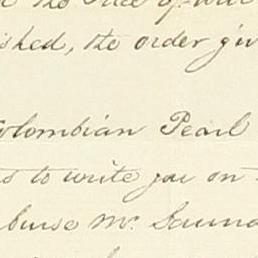 the
shed, the order giv
olombian Pearl
s to write you on
burse Mr. Saund